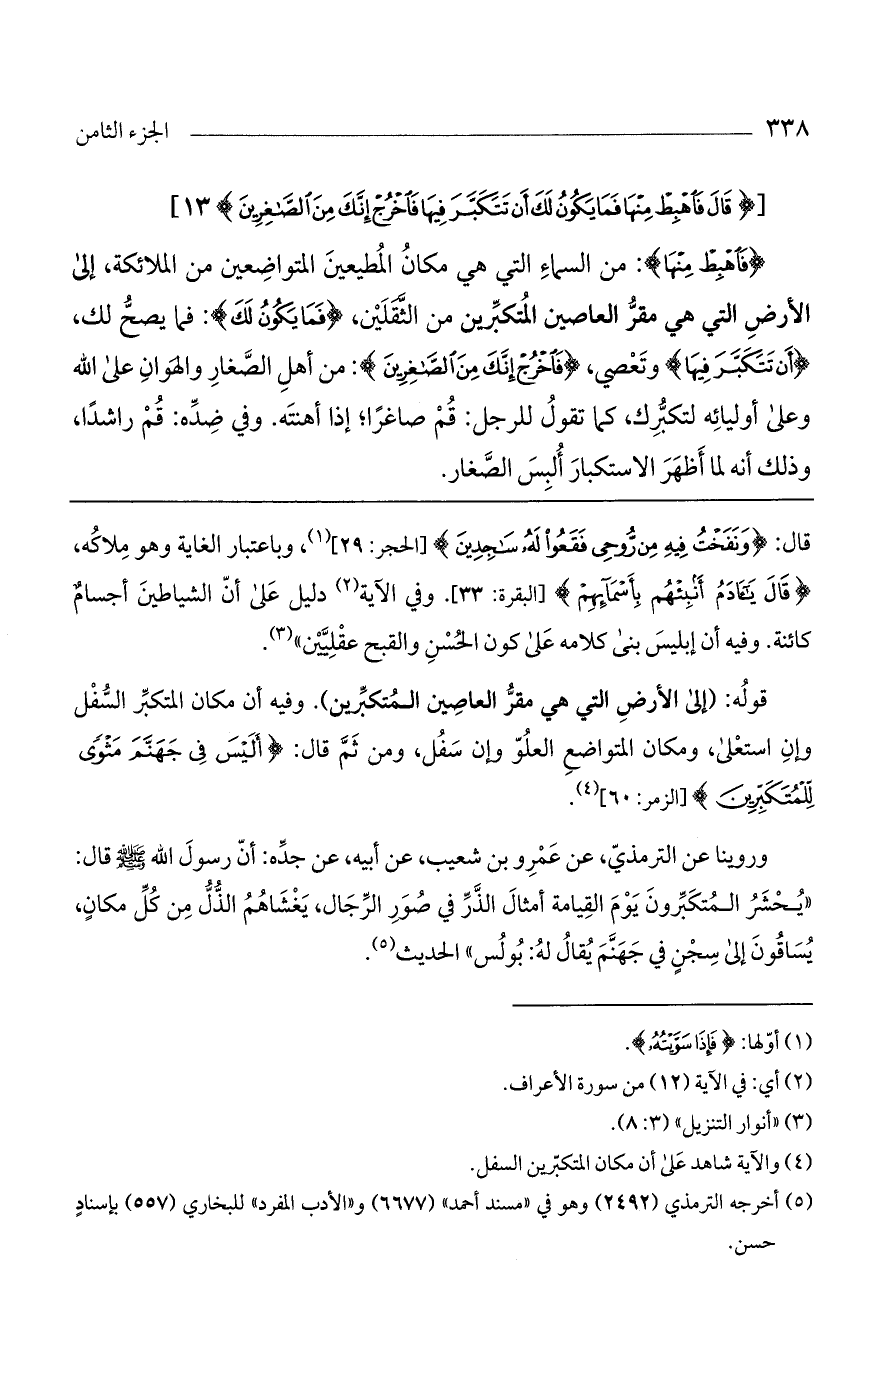 ٣٣٨ الجزء الثامن
[﴿ قَالَ فَٱهْبِطْ مِنْهَا فَمَا يَكُونُ لَكَ أَن تَتَكَبَّرَ فِيهَا فَٱخْرُجْ إِنَّكَ مِنَ ٱلصَّٰغِرِينَ ﴾ ١٣]
﴿فَٱهْبِطْ مِنْهَا﴾: من السماءِ التي هي مكانُ المُطيعينَ المتواضِعين من الملائكة، إلىٰ
الأرضِ التي هي مقرُّ العاصين المُتكبِّرين من الثَّقَلَيْن، ﴿فَمَا يَكُونُ لَكَ﴾: فما يصحُّ لك،
﴿أَن تَتَكَبَّرَ فِيهَا﴾ وتَعْصي، ﴿فَٱخْرُجْ إِنَّكَ مِنَ ٱلصَّٰغِرِينَ ﴾: من أهلِ الصَّغارِ والهَوانِ علىٰ الله
وعلىٰ أوليائِه لتكبُّرِك، كما تقولُ للرجل: قُمْ صاغرًا؛ إذا أهنتَه. وفي ضِدِّه: قُمْ راشدًا،
وذلك أنه لما أَظهَرَ الاستكبارَ أُلبِسَ الصَّغار.
قال: ﴿وَنَفَخْتُ فِيهِ مِن رُّوحِى فَقَعُوا۟ لَهُۥ سَٰجِدِينَ ﴾ [الحجر: ٢٩](١)، وباعتبار الغاية وهو مِلاكُه،
﴿ قَالَ يَٰٓـَٔادَمُ أَنۢبِئْهُم بِأَسْمَآئِهِمْ ﴾ [البقرة: ٣٣]. وفي الآية(٢) دليل عَلىٰ أنّ الشياطينَ أجسامٌ
كائنة. وفيه أن إبليسَ بنىٰ كلامه عَلىٰ كون الحُسْنِ والقبح عقْلِيَّيْن»(٣).
قولُه: (إلىٰ الأرضِ التي هي مقرُّ العاصِين الـمُتكبِّرين). وفيه أن مكان المتكبِّر السُّفْل
وإنِ استعْلىٰ، ومكان المتواضعِ العلوّ وإن سَفُل، ومن ثَمَّ قال: ﴿ أَلَيْسَ فِى جَهَنَّمَ مَثْوًى
لِّلْمُتَكَبِّرِينَ ﴾ [الزمر: ٦٠](٤).
وروينا عن الترمذيّ، عن عَمْرِو بن شعيب، عن أبيه، عن جدِّه: أنّ رسولَ الله ﷺ قال:
«يُـحْشَرُ الـمُتكَبِّرونَ يَوْمَ القِيامة أمثالَ الذَّرِّ في صُوَرِ الرِّجَال، يَغْشَاهُمُ الذُّلُّ مِن كُلِّ مكانٍ،
يُسَاقُونَ إلىٰ سِجْنٍ في جَهَنَّمَ يُقالُ لهُ: بُولُس» الحديث(٥).
(١) أوّلها: ﴿ فَإِذَا سَوَّيْتُهُۥ ﴾.
(٢) أي: في الآية (١٢) من سورة الأعراف.
(٣) «أنوار التنزيل» (٣: ٨).
(٤) والآية شاهد عَلىٰ أن مكان المتكبّرين السفل.
(٥) أخرجه الترمذي (٢٤٩٢) وهو في «مسند أحمد» (٦٦٧٧) و«الأدب المفرد» للبخاري (٥٥٧) بإسنادٍ
حسن.